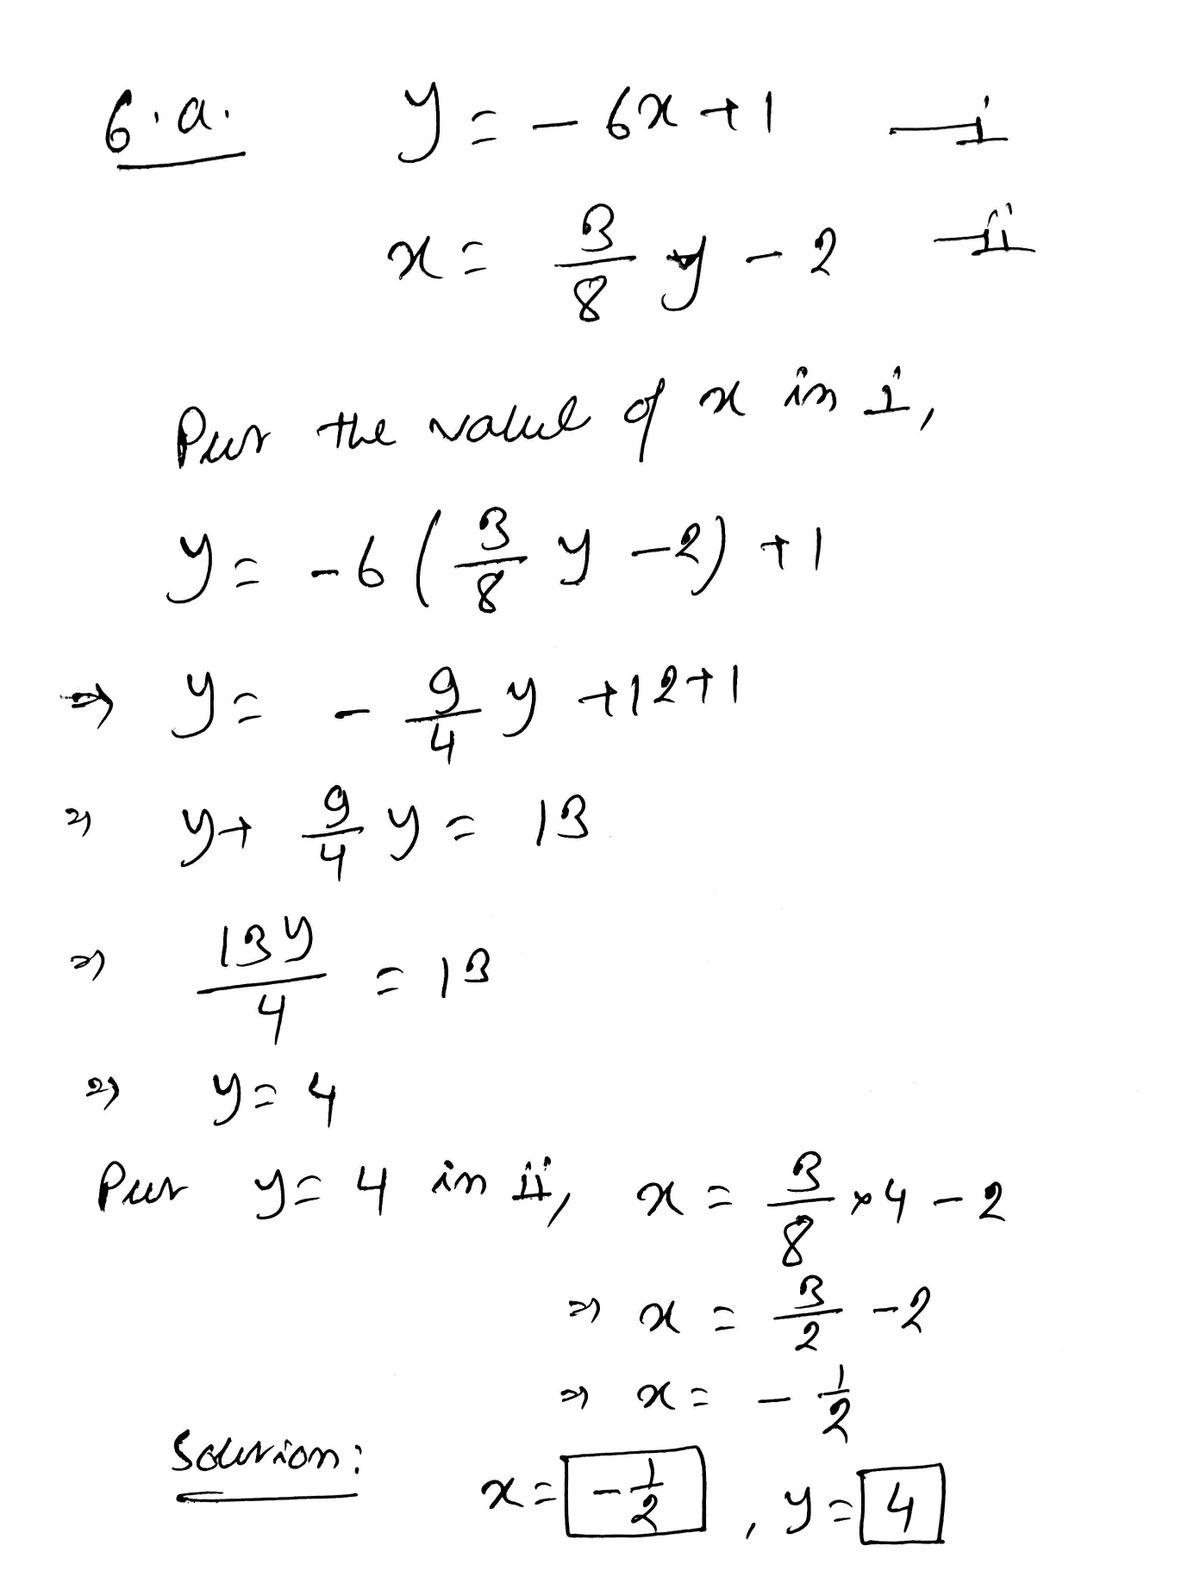 6.a. y = - 6x + 1 — i
x = 3/8 y - 2 — ii
Put the value of x in i,
y = - 6 ( 3/8 y - 2 ) + 1
⇒ y = - 9/4 y + 12 + 1
⇒ y + 9/4 y = 13
⇒ 13y/4 = 13
⇒ y = 4
Put y = 4 in ii, x = 3/8 × 4 - 2
⇒ x = 3/2 - 2
⇒ x = - 1/2
Solution:
x = - 1/2 , y = 4